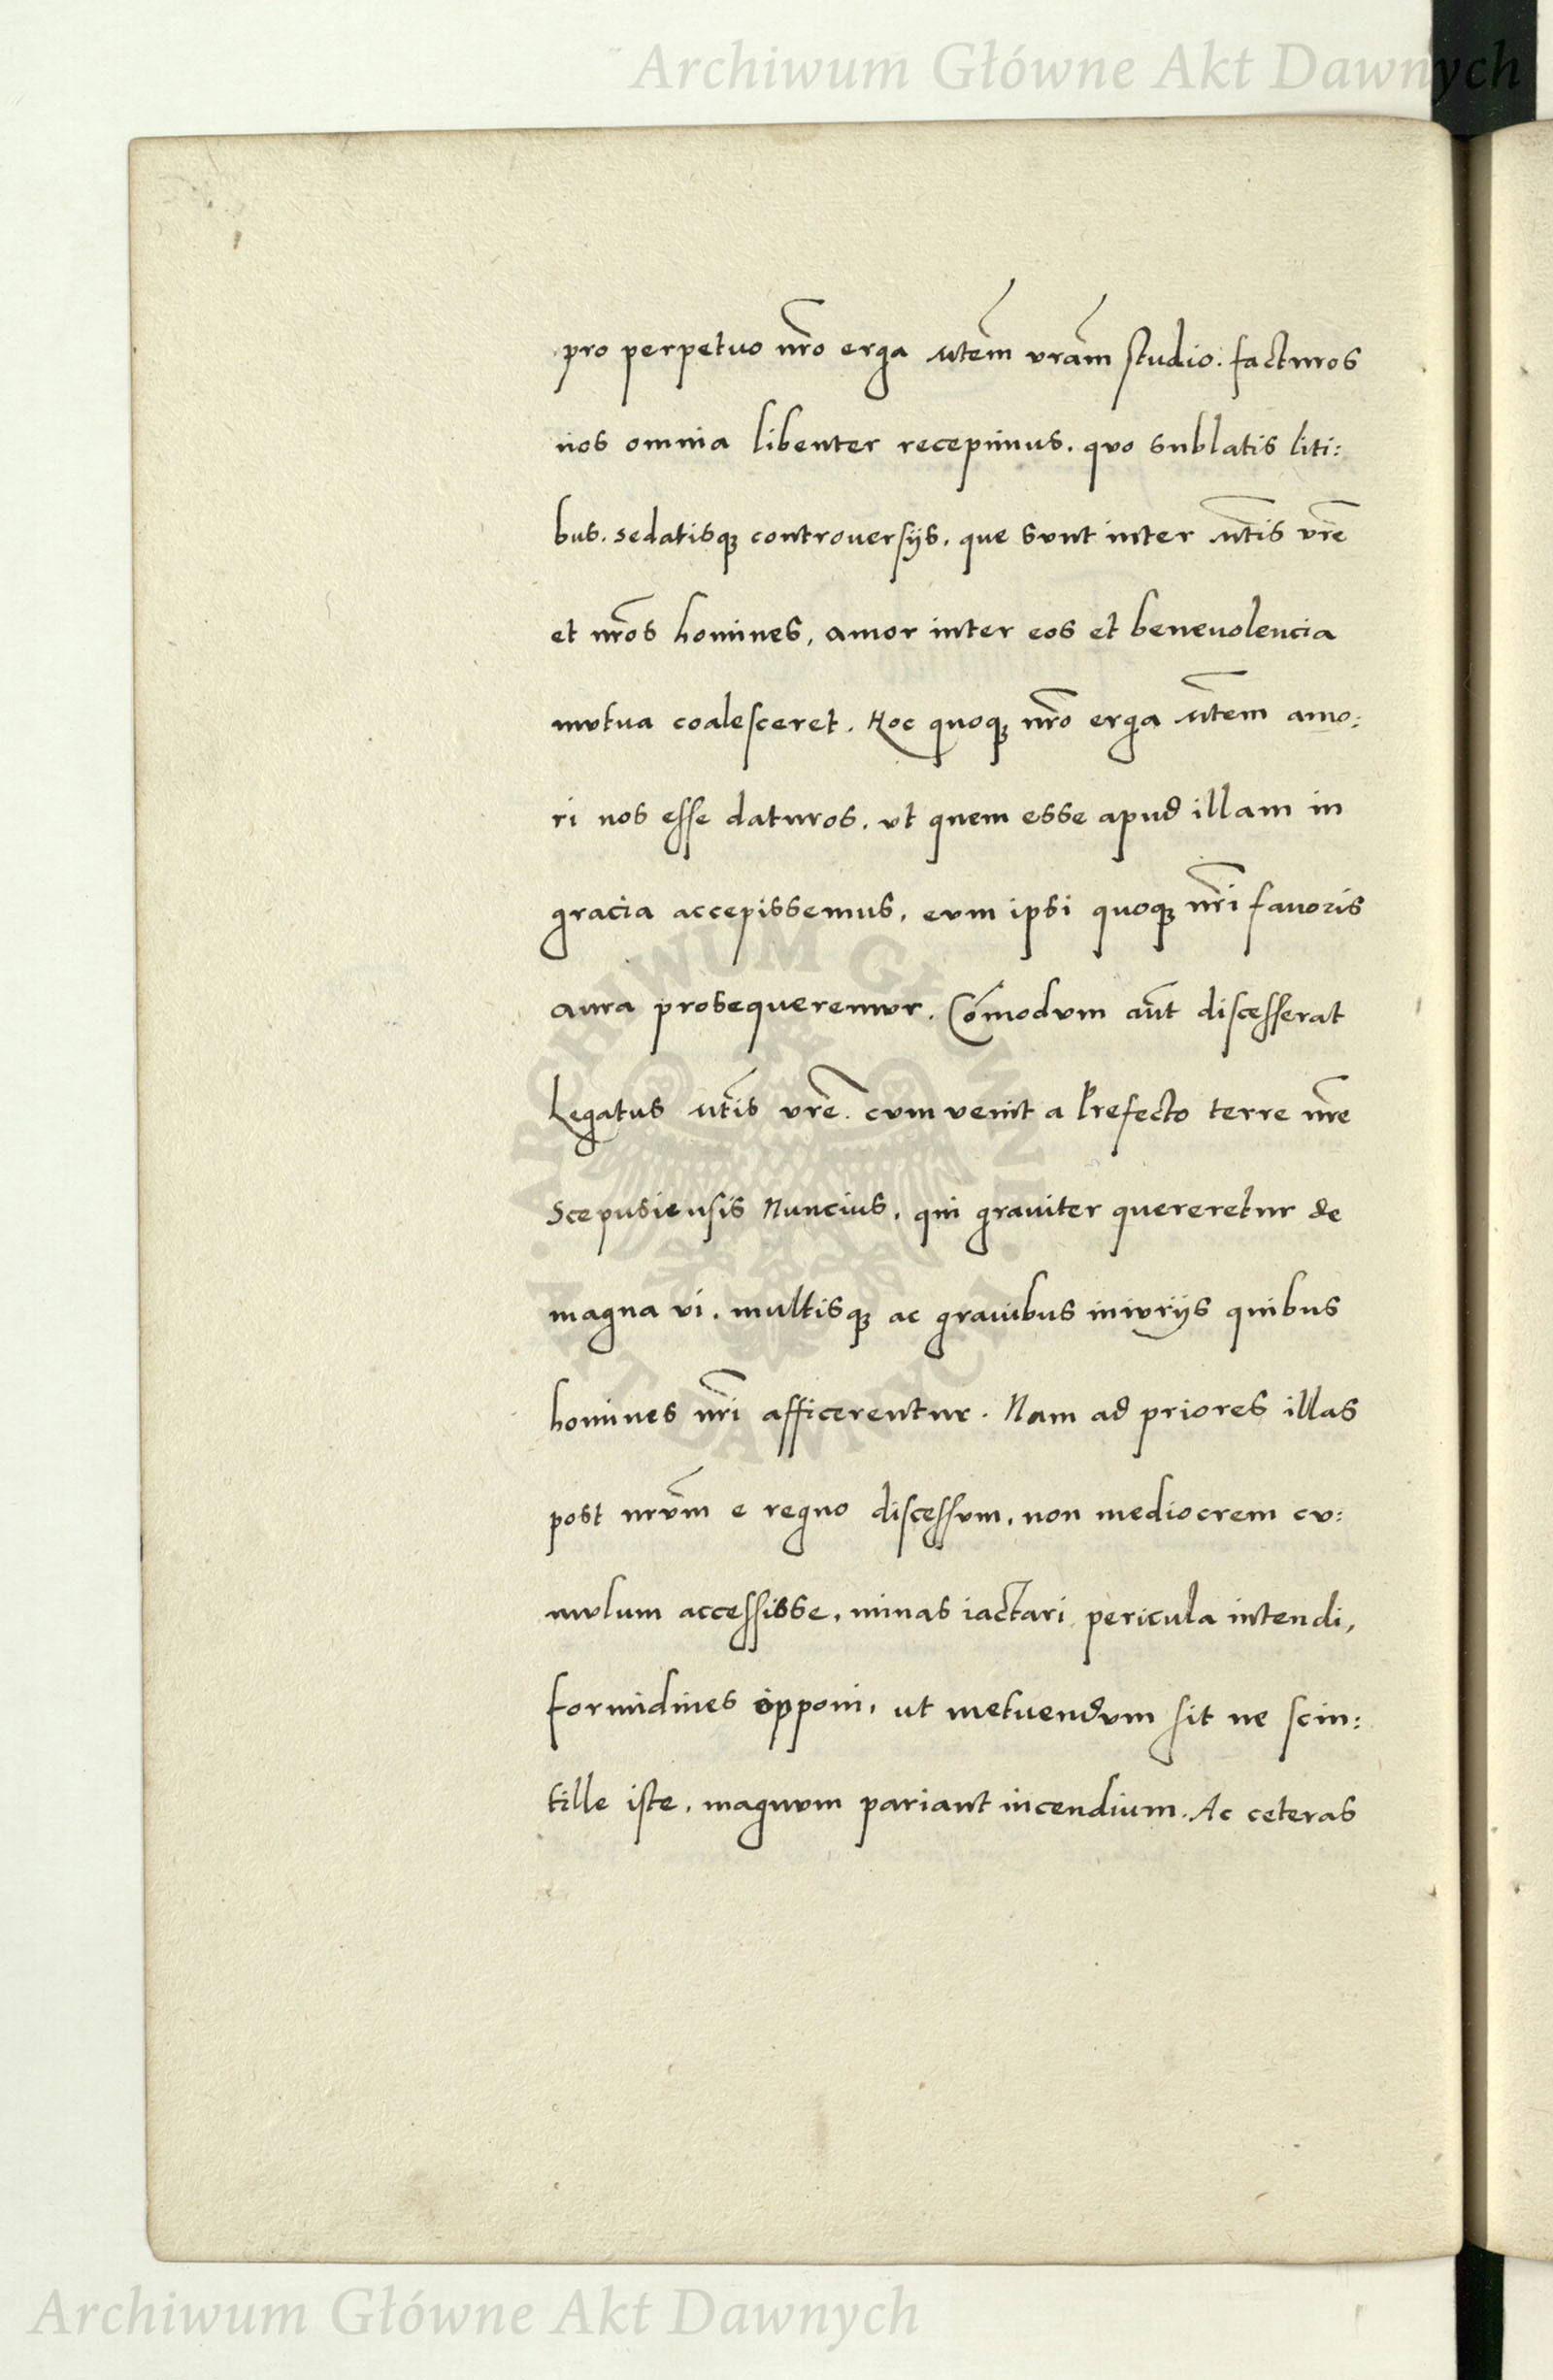 Archiwum Główne Akt Dawnych
pro perpetuo nr̃o erga Mtem̃ vrãm studio. facturos
nos omnia libenter recepimus. quo sublatis liti:
bus. sedatisq; controuersijs. que sunt inter Mtĩs vrẽ
et nr̃os homines, amor inter eos et beneuolencia
mutua coalesceret. Hoc quoq; nr̃o erga Mtẽm amo:
ri nos esse daturos. vt quem esse apud illam in
gracia accepissemus, eum ipsi quoq; nr̃i fauoris
aura prosequeremur. Cõmodum aũt discesserat
Legatus Mtĩs vrẽ. cum venit a Prefecto terre nr̃e
Scepusiensis Nuncius. qui grauiter quereretur de
magna vi. multisq; ac grauibus iniurijs quibus
homines nr̃i afficerentur. Nam ad priores illas
post nrũm e regno discessum. non mediocrem cu:
mulum accessisse, minas iactari pericula intendi,
formidines opponi, ut metuendum sit ne scin:
tille iste. magnum pariant incendium. Ac ceteras
ARCHIWUM GŁÓWNE · AKT DAWNYCH ·
Archiwum Główne Akt Dawnych